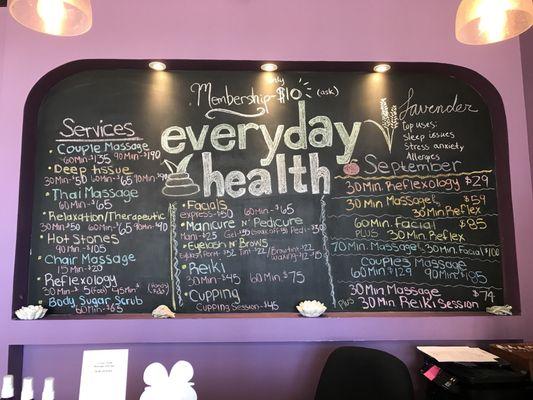 Membership - only $10 (ask)
everyday
health
Services
• Couple Massage
60min $135 90min $190
• Deep Tissue
30min $50 60min $65 90min
• Thai Massage
60min $65
• Relaxation/Therapeutic
30min $50 60min $65 90min
• Hot Stones
90min $105
• Chair Massage
15min $20
• Reflexology
30min $45
Body Sugar Scrub
60min $65
• Facials
express $50 60min $65
• Manicure n' Pedicure
• Eyelash n' Brows
• Reiki
30min $45 60min $75
• Cupping
Cupping Session $45
Lavender
Top uses:
Sleep issues
Stress anxiety
Allergies
September
30 Min. Reflexology $29
30 Min. Massage & $59
30 Min Reflex
60 Min. Facial $85
Plus 30 Min Reflex
70 Min. Massage & 30 Min. Facial $100
Couples Massage
60 min $129 90 min $185
30 Min Massage $74
Plus 30 Min Reiki Session